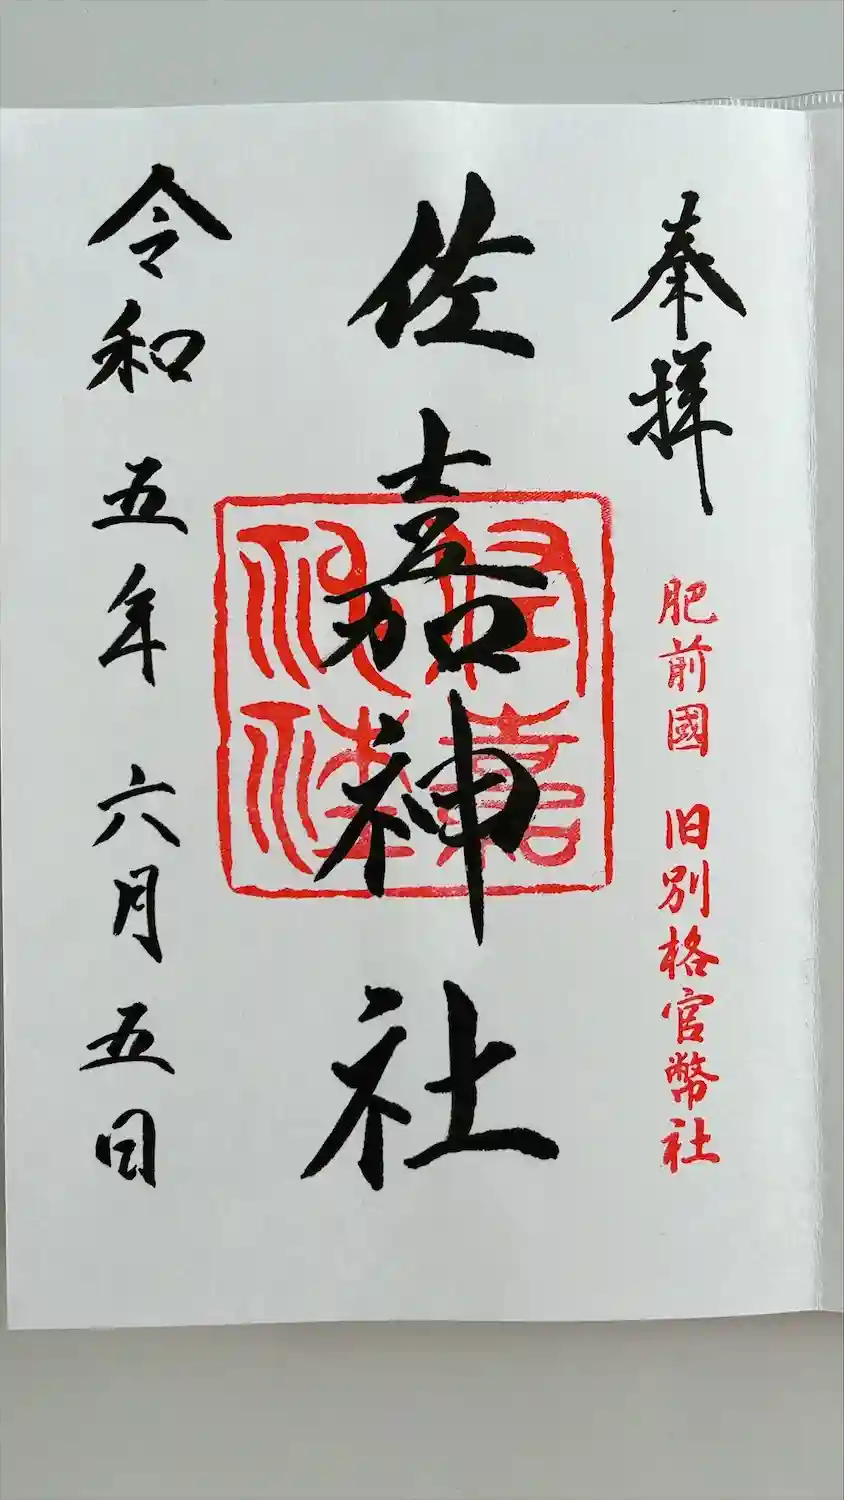 奉拝
肥前國 旧別格官幣社
佐嘉神社
佐嘉神社
令和五年 六月 五日